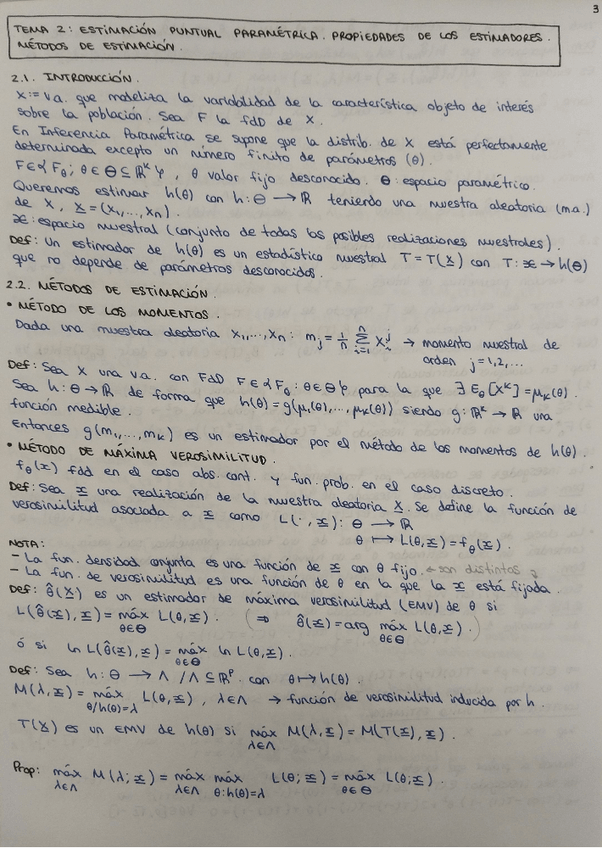 3
TEMA 2: ESTIMACIÓN PUNTUAL PARAMÉTRICA. PROPIEDADES DE LOS ESTIMADORES.
MÉTODOS DE ESTIMACIÓN.
2.1. INTRODUCCIÓN.
X:= v.a. que modeliza la variabilidad de la característica objeto de interés
sobre la población. Sea F la fdD de X.
En Inferencia Paramétrica se supone que la distrib. de X está perfectamente
determinada excepto un número finito de parámetros (θ).
F∈{F_θ; θ∈Θ⊆ℝᵏ}, θ valor fijo desconocido. Θ: espacio paramétrico.
Queremos estimar h(θ) con h: Θ → ℝ teniendo una muestra aleatoria (m.a.)
de X, X̲ = (X₁,...,Xₙ).
𝒳: espacio muestral (conjunto de todas las posibles realizaciones muestrales).
Def: Un estimador de h(θ) es un estadístico muestral T = T(X̲) con T: 𝒳 → h(Θ)
que no depende de parámetros desconocidos.
2.2. MÉTODOS DE ESTIMACIÓN.
• MÉTODO DE LOS MOMENTOS.
Dada una muestra aleatoria X₁,...,Xₙ: m_j = 1/n Σ_{i=1}^n X_i^j → momento muestral de
orden j=1,2,...
Def: Sea X una v.a. con FdD F∈{F_θ: θ∈Θ} para la que ∃ E_θ[Xᵏ] = μ_k(θ).
Sea h: Θ → ℝ de forma que h(θ) = g(μ₁(θ),...,μ_k(θ)) siendo g: ℝᵏ → ℝ una
función medible.
Entonces g(m₁,...,m_k) es un estimador por el método de los momentos de h(θ).
• MÉTODO DE MÁXIMA VEROSIMILITUD.
f_θ(x) fdd en el caso abs. cont. y fun. prob. en el caso discreto.
Def: Sea x̲ una realización de la muestra aleatoria X̲. Se define la función de
verosimilitud asociada a x̲ como L(·, x̲): Θ → ℝ
θ ↦ L(θ, x̲) = f_θ(x̲).
NOTA:
- La fun. densidad conjunta es una función de x̲ con θ fijo. ← son distintos
- La fun. de verosimilitud es una función de θ en la que la x̲ está fijada.
Def: θ̂(X̲) es un estimador de máxima verosimilitud (EMV) de θ si
L(θ̂(x̲), x̲) = máx_{θ∈Θ} L(θ, x̲). ( ⇒ θ̂(x̲) = arg máx_{θ∈Θ} L(θ, x̲). )
ó si ln L(θ̂(x̲), x̲) = máx_{θ∈Θ} ln L(θ, x̲).
Def: Sea h: Θ → Λ / Λ ⊆ ℝᵖ con θ ↦ h(θ).
M(λ, x̲) = máx_{θ/h(θ)=λ} L(θ, x̲), λ∈Λ → función de verosimilitud inducida por h.
T(X̲) es un EMV de h(θ) si máx_{λ∈Λ} M(λ, x̲) = M(T(x̲), x̲).
Prop: máx_{λ∈Λ} M(λ; x̲) = máx_{λ∈Λ} máx_{θ:h(θ)=λ} L(θ; x̲) = máx_{θ∈Θ} L(θ; x̲).